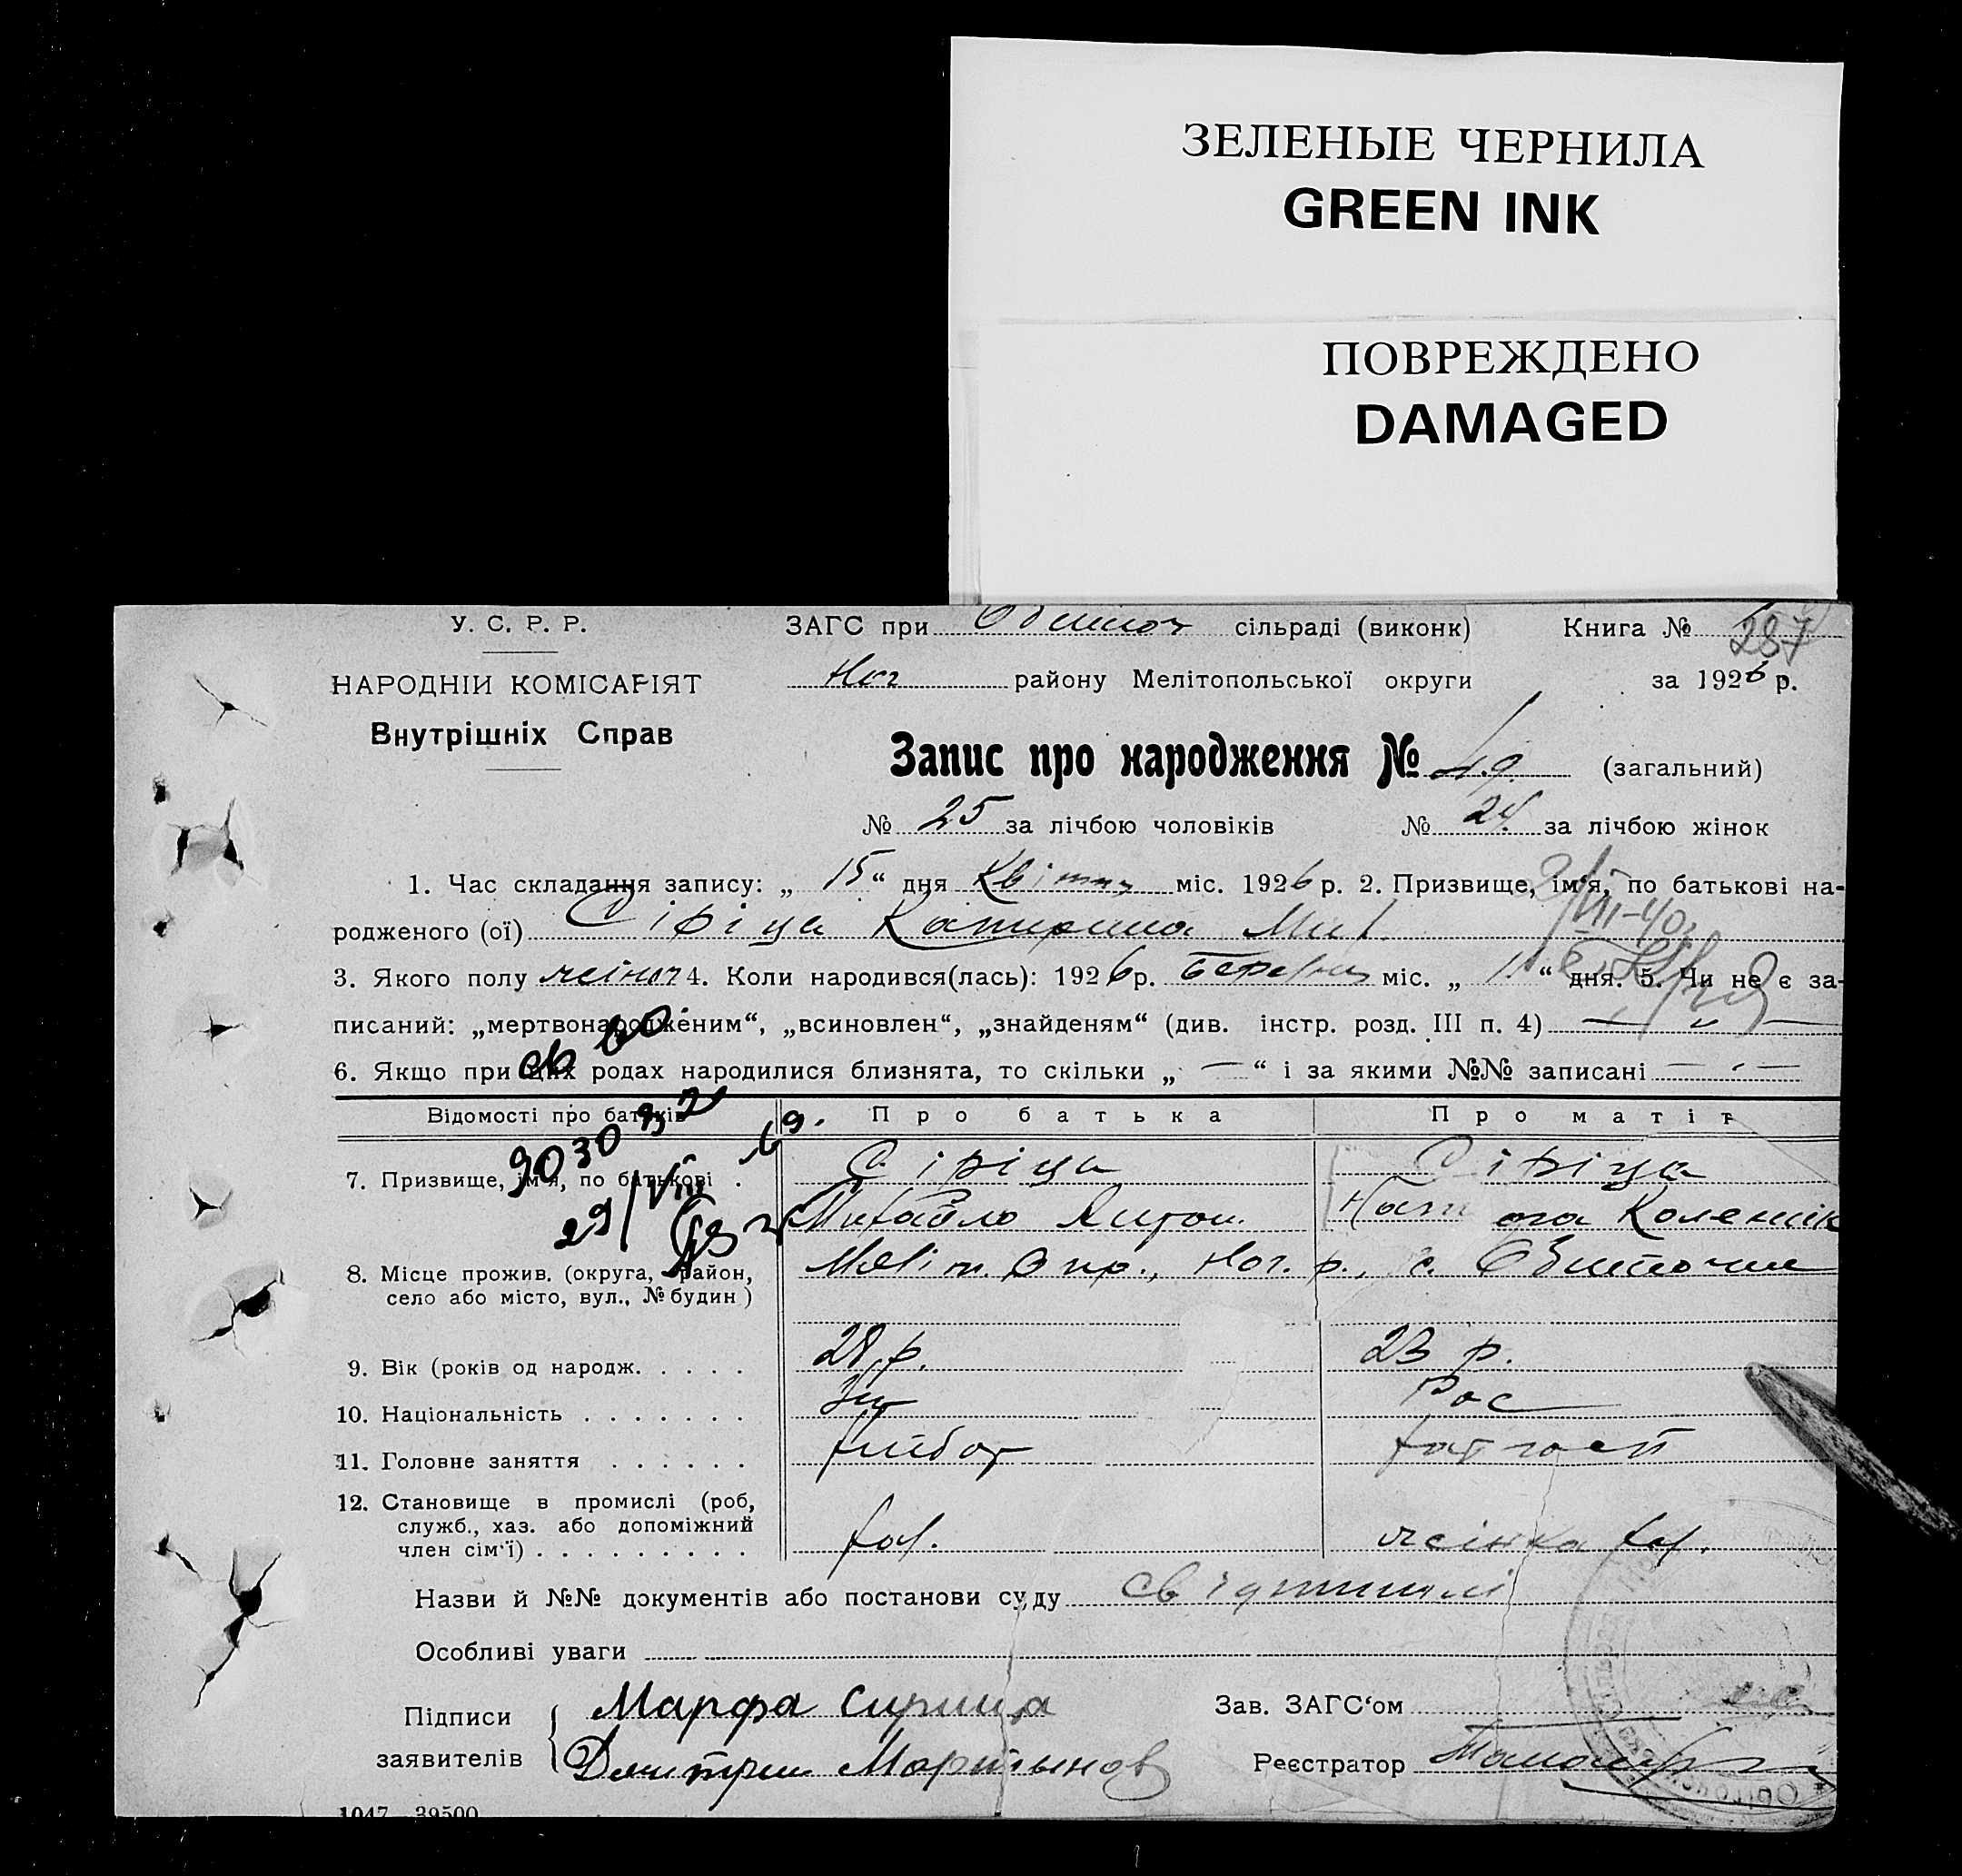 ЗЕЛЕНЫЕ ЧЕРНИЛА
GREEN INK
ПОВРЕЖДЕНО
DAMAGED
У. С. Р. Р. ЗАГС при Обиточ сільраді (виконк) Книга № 287
НАРОДНІИ КОМІСАРІЯТ Ног району Мелітопольської округи за 1926 р.
Внутрішніх Справ
Запис про народження № 49 (загальний)
№ 25 за лічбою чоловіків № 24 за лічбою жінок
1. Час складання запису: „ 15 “ дня Квітня міс. 1926 р. 2. Призвище, ім'я, по батькові на-
родженого (ої) Сіріца Катирина Мих.
3. Якого полу жіноч 4. Коли народився(лась): 1926 р. березня міс. „ “ дня. 5. Чи не є за-
писаний: „мертвонародженим“, „всиновлен“, „знайденям“ (див. інстр. розд. III п. 4) — „ —
6. Якщо при цих родах народилися близнята, то скільки „ — “ і за якими №№ записані — „ —
Відомості про батьків Про батька Про матір
7. Призвище, ім'я, по батькові . Сіріца Сіріца
29/VIII Михайло Антон. Коленик
8. Місце прожив. (округа, район, Меліт. Окр., Ног. р., с. Обиточне
село або місто, вул., № будин)
9. Вік (років од народж. . . . . 28 р. 23 р.
10. Національність . . . . . . . Рос
11. Головне заняття . . . . . . хлібор
12. Становище в промислі (роб,
служб., хаз. або допоміжний
член сім'ї) . . . . . . . . . хаз. жінка хаз.
Назви й №№ документів або постанови суду свідотилі
Особливі уваги
Підписи Марфа Сирица Зав. ЗАГС'ом
заявителів Дмитрии Мартынов Реєстратор
1047 39500